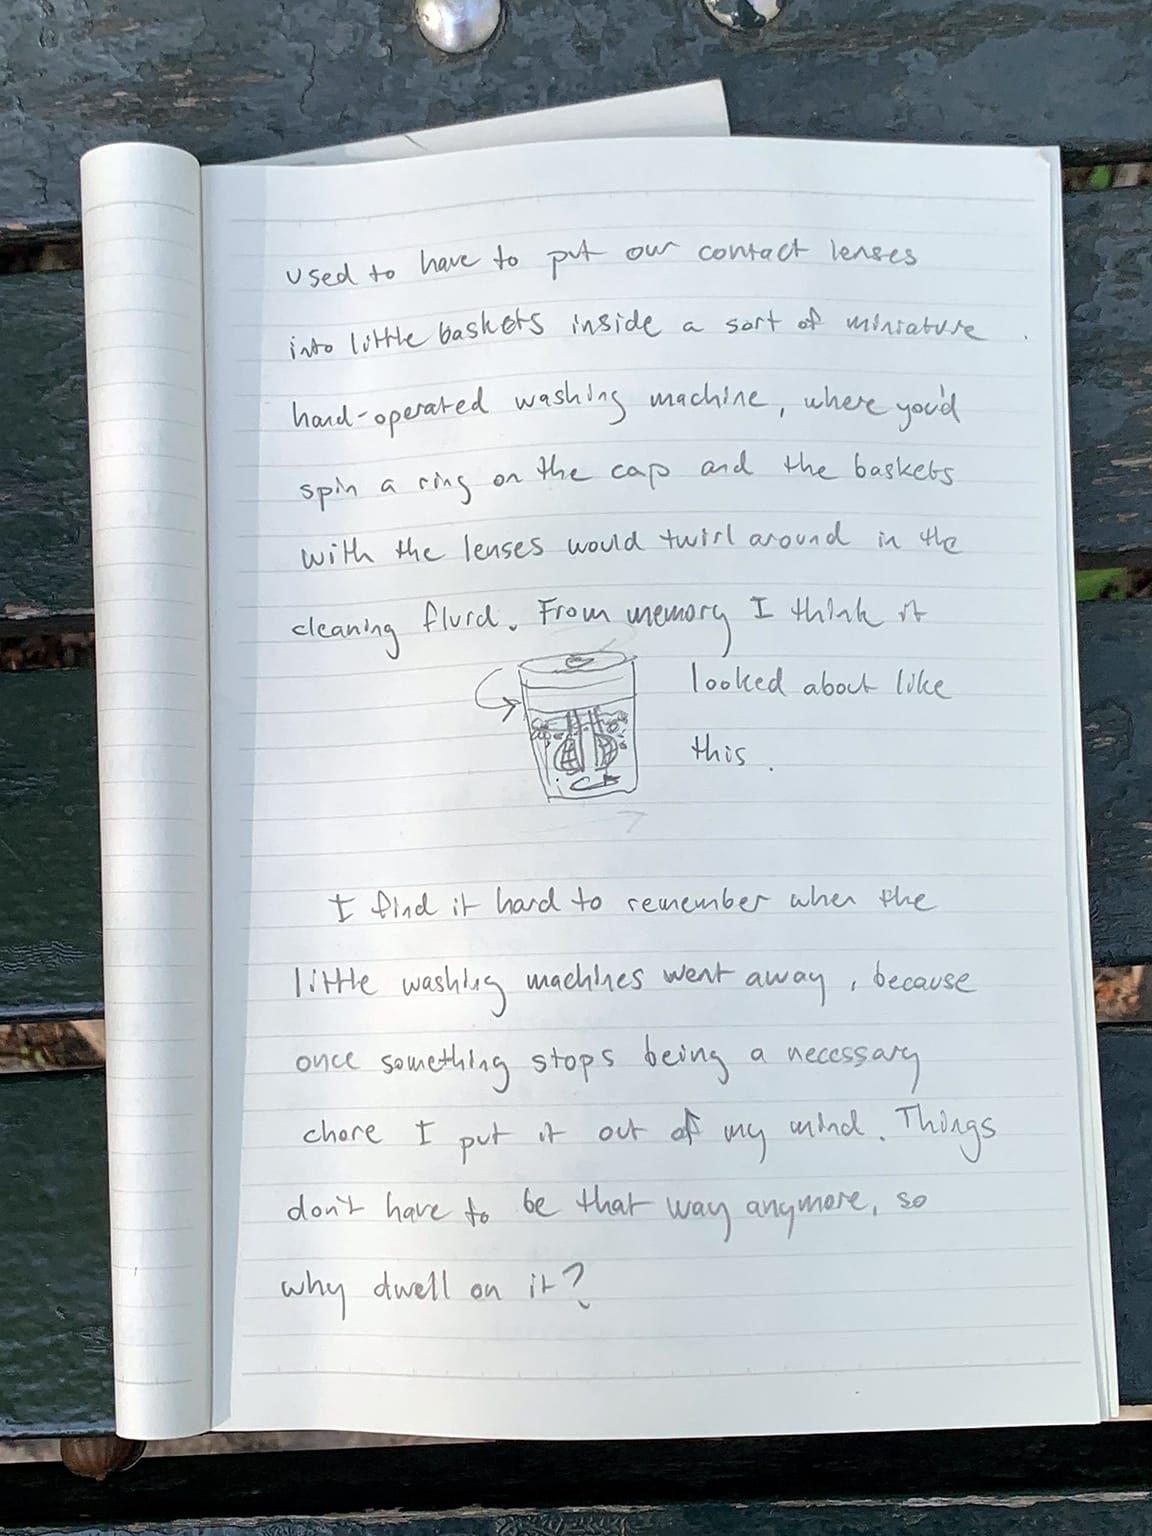 used to have to put our contact lenses
into little baskets inside a sort of miniature
hand-operated washing machine, where you'd
spin a ring on the cap and the baskets
with the lenses would twirl around in the
cleaning fluid. From memory I think it
looked about like
this.
I find it hard to remember when the
little washing machines went away, because
once something stops being a necessary
chore I put it out of my mind. Things
don't have to be that way anymore, so
why dwell on it?